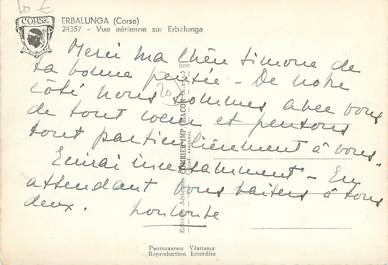 10 €
CORSE
ERBALUNGA (Corse)
24357 - Vue aérienne sur Erbalunga
Merci ma chère Simone de
ta bonne pensée - De notre
côté nous sommes avec vous
de tout coeur et pensons
tout particulièrement à vous -
Ecrirai incessamment - En
attendant bons baisers à tous
deux.
PHOTOGRAPHIE VÉRITABLE
Reproduction Interdite